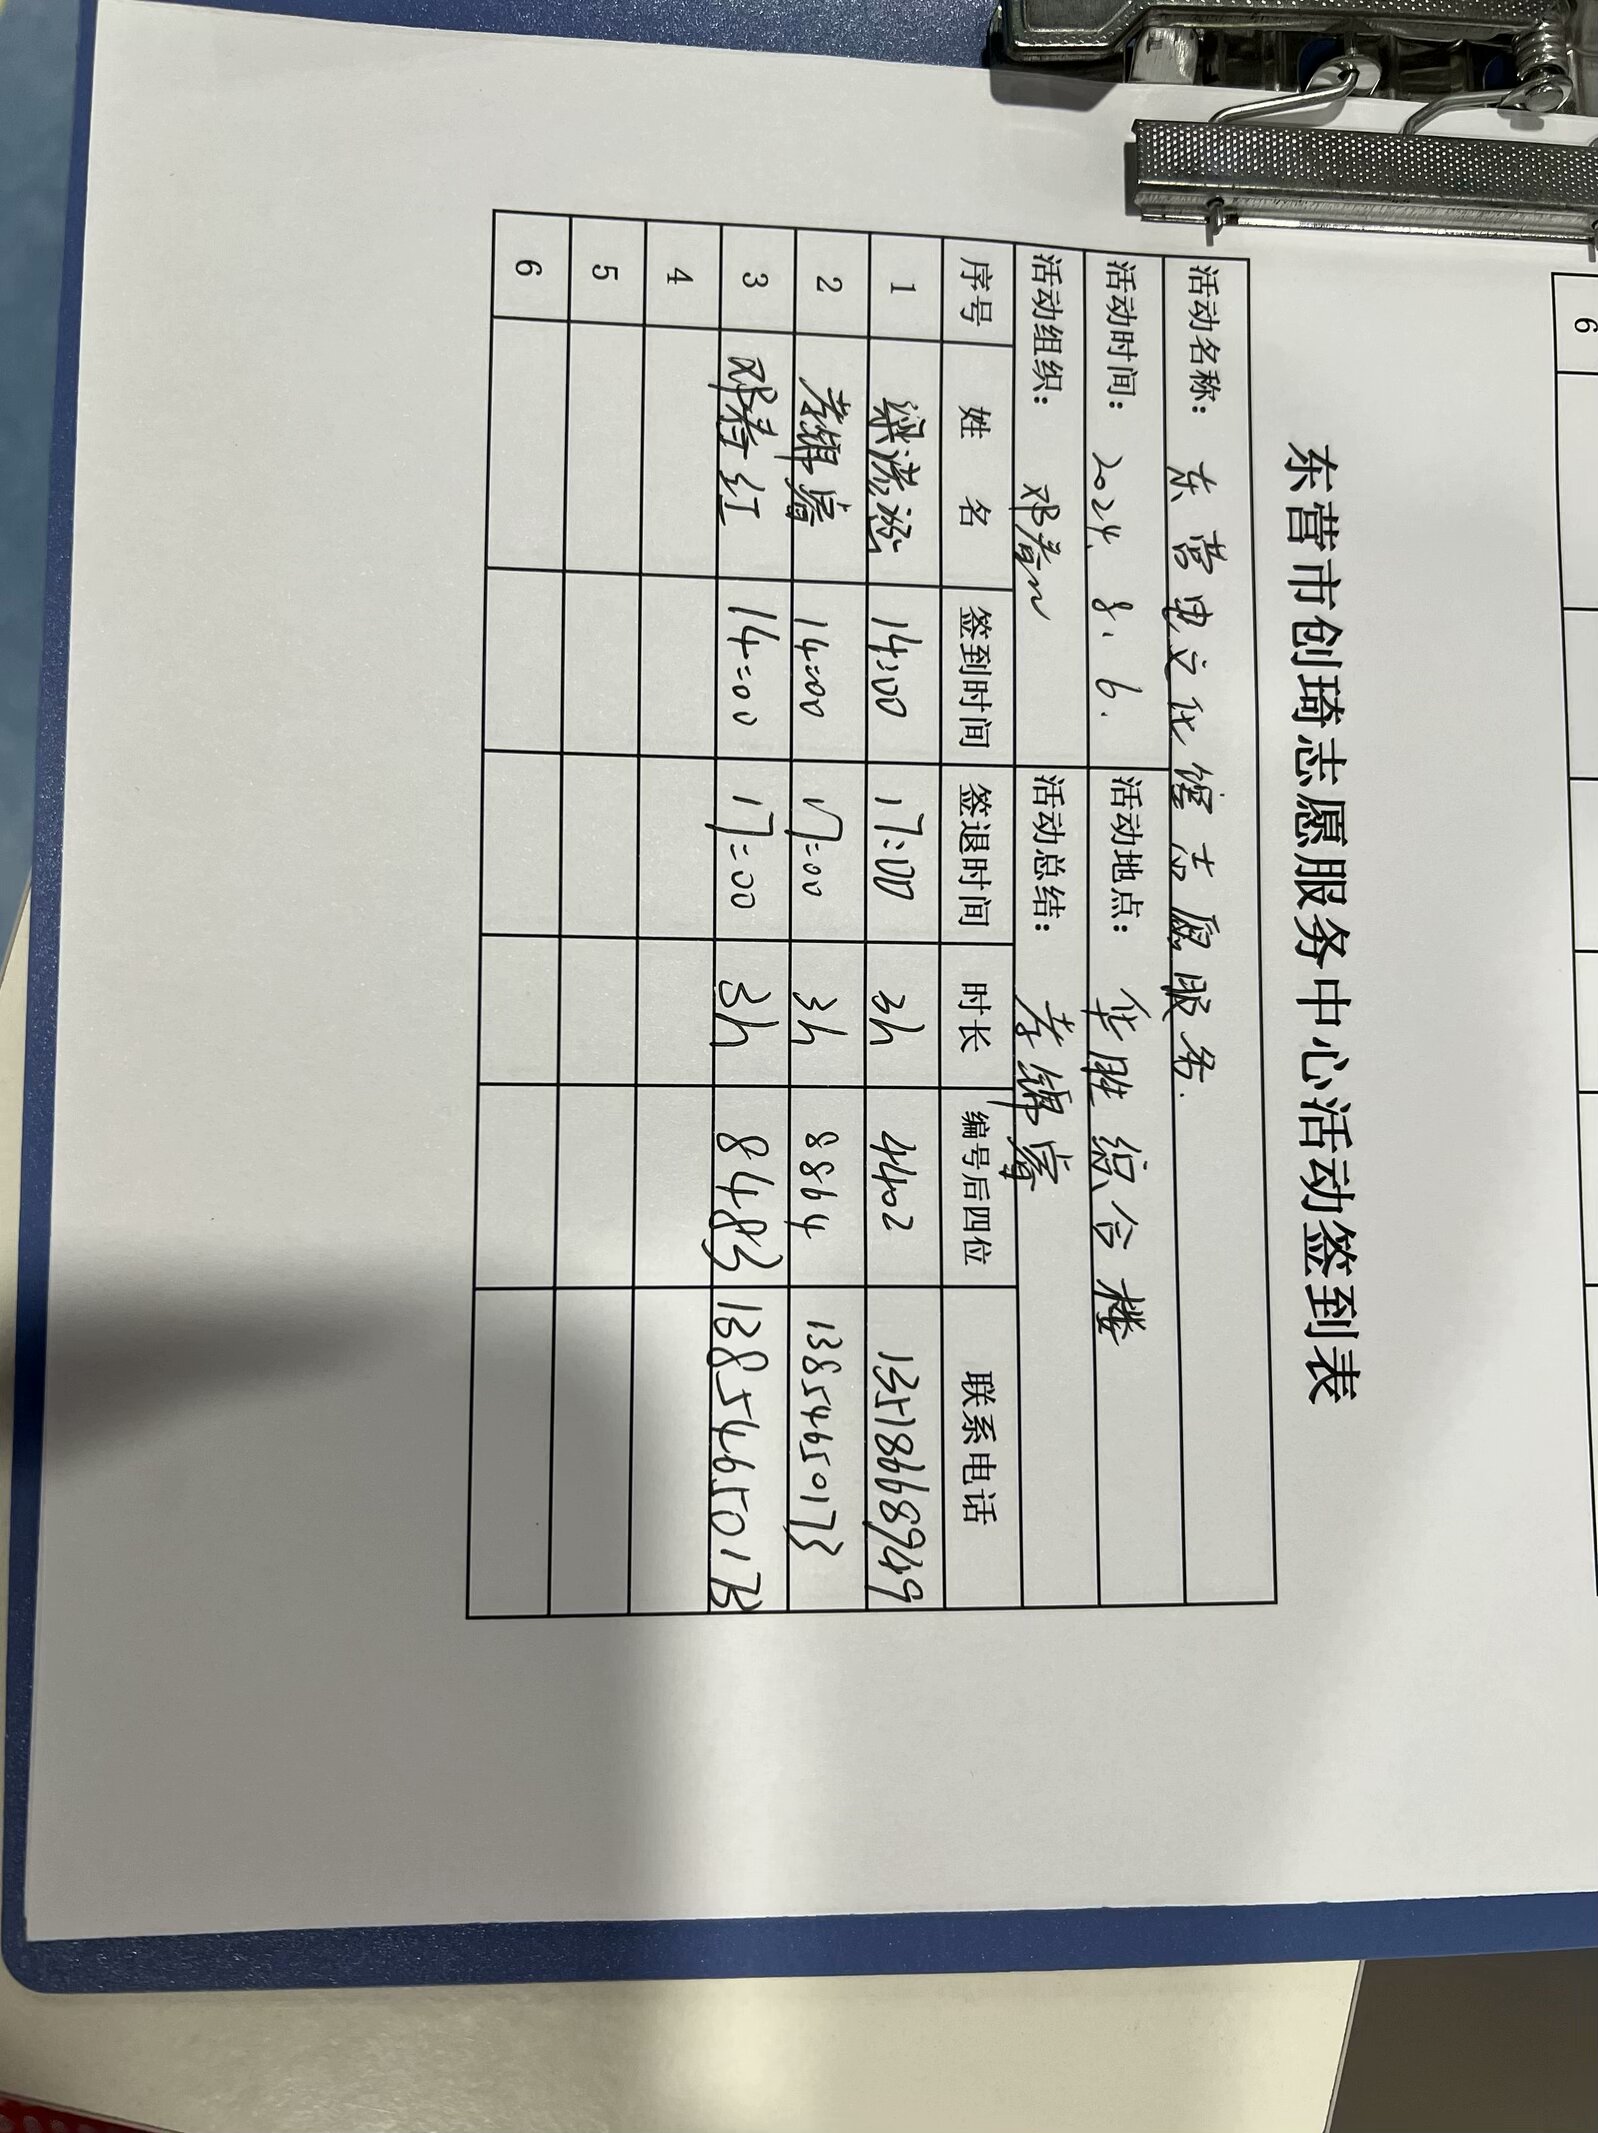 东营市创琦志愿服务中心活动签到表
活动名称： 东营电文化馆志愿服务.
活动时间： 2024. 8. 6. 活动地点： 华胜综合楼
活动组织： 邓春 活动总结： 李锦睿
序号 姓 名 签到时间 签退时间 时长 编号后四位 联系电话
1 梁 14:00 17:00 3h 4402 13518668949
2 李锦睿 14:00 17:00 3h 8864 13854650173
3 邓春红 14:00 17:00 3h 8483 13854650173
4
5
6
6